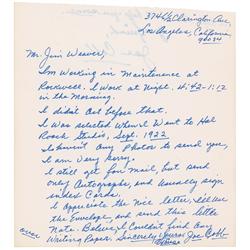 3746 Clarington Ave,
Los Angeles, California
90034
Mr. Jim Weaver,
I'm Working in Maintenance at
Rockwell. I Work at Night. 4:42-1:12
in the Morning.
I did art before that.
I was selected when I Went to Hal
Roach Studio, Sept. 1922
I haven't any Photos to send you,
I am very sorry.
I still get fan mail, but send
only Autographs, and usually sign
index Cards.
I appreciate the nice letter, I'll use
the Envelope, and send this little
Note. Believe, I Couldn't find any
Writing Paper. Sincerely Yours, Joe Cobb
over